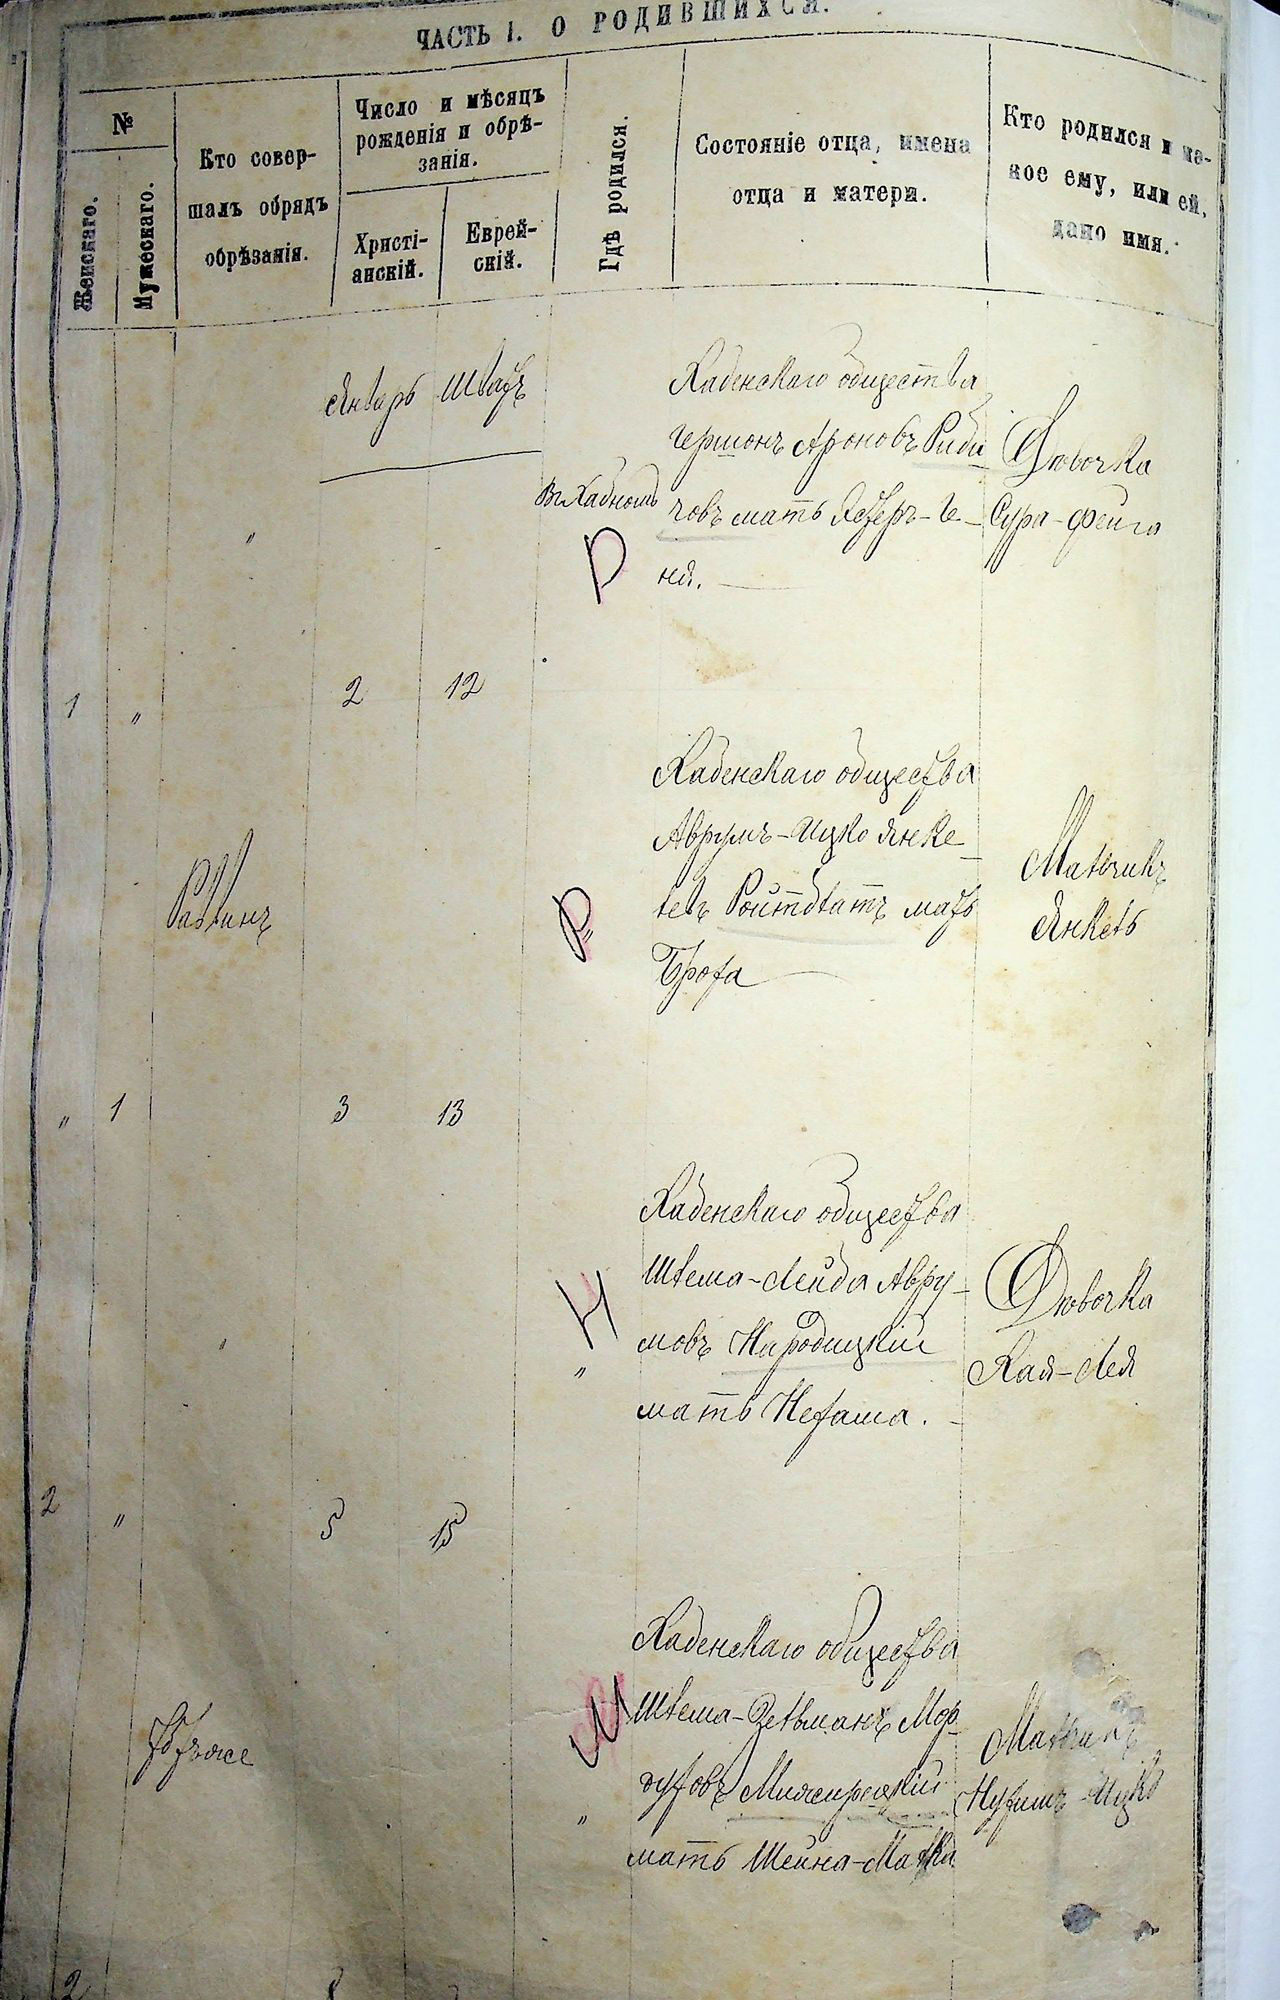 ЧАСТЬ I. О РОДИВШИХСЯ.
№
Женскаго.
Мужескаго.
Кто совер-
шалъ обрядъ
обрѣзанія.
Число и мѣсяцъ
рожденія и обрѣ-
занія.
Христі-
анскій.
Еврей-
скій.
Гдѣ родился.
Состояніе отца, имена
отца и матери.
Кто родился и ка-
кое ему, или ей,
дано имя.
Январь Шватъ
Хабенскаго общества
Гершонъ Ароновъ Риби
човъ мать Эстеръ-Ге-
ня.
Въ Хабномъ
Р
Дѣвочка
Сура-Фейга
"
1 " 2 12
Хабенскаго общества
Аврумъ-Ицко Янке-
левъ мать
Броха
Раввинъ
Р
"
Мальчикъ
Янкель
" 1 3 13
Хабенскаго общества
Шлема-Лейба Авру-
мовъ Народицкій
мать Нехама.
"
Н
"
Дѣвочка
Хая-Лея
2 " 5 15
Хабенскаго общества
Шлема-Зельманъ Мор-
духовъ Межирецкій
мать Шейна-Малка
Тотъ же
М
"
Мальчикъ
Нухимъ-Ицко
2